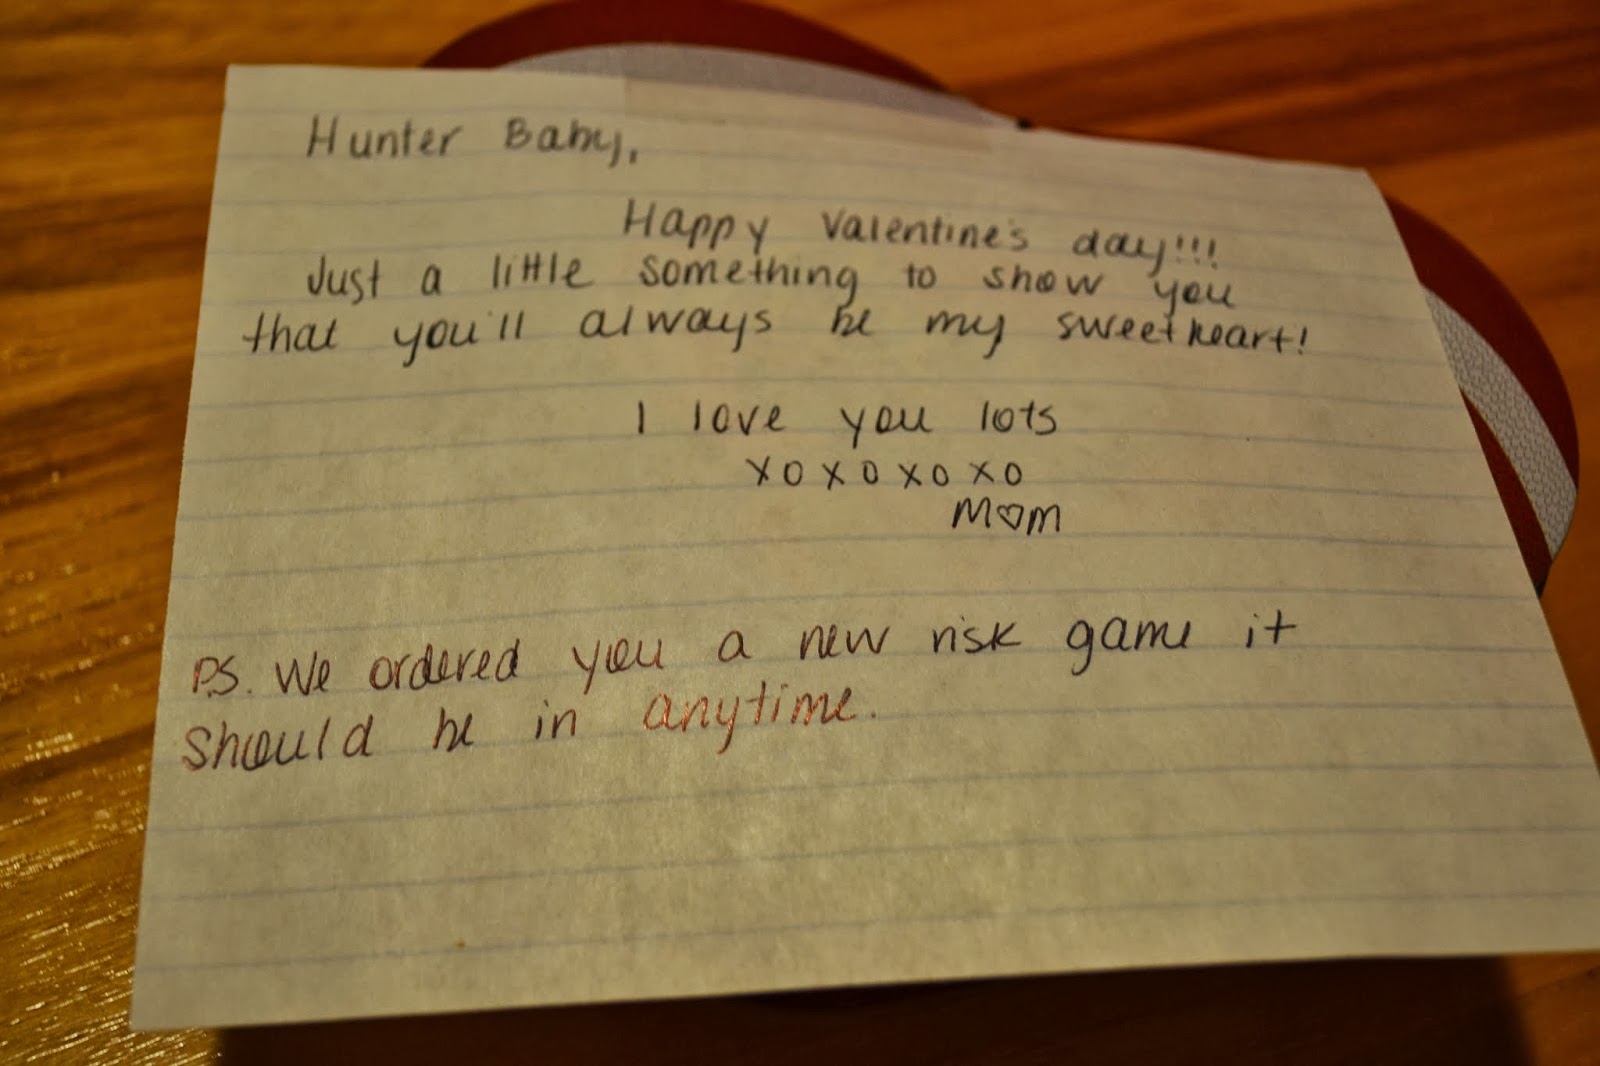 Hunter Baby,
Happy Valentine's day!!!
Just a little something to show you
that you'll always be my sweetheart!
I love you lots
xoxoxoxo
M♡M
P.S. We ordered you a new risk game it
should be in anytime.